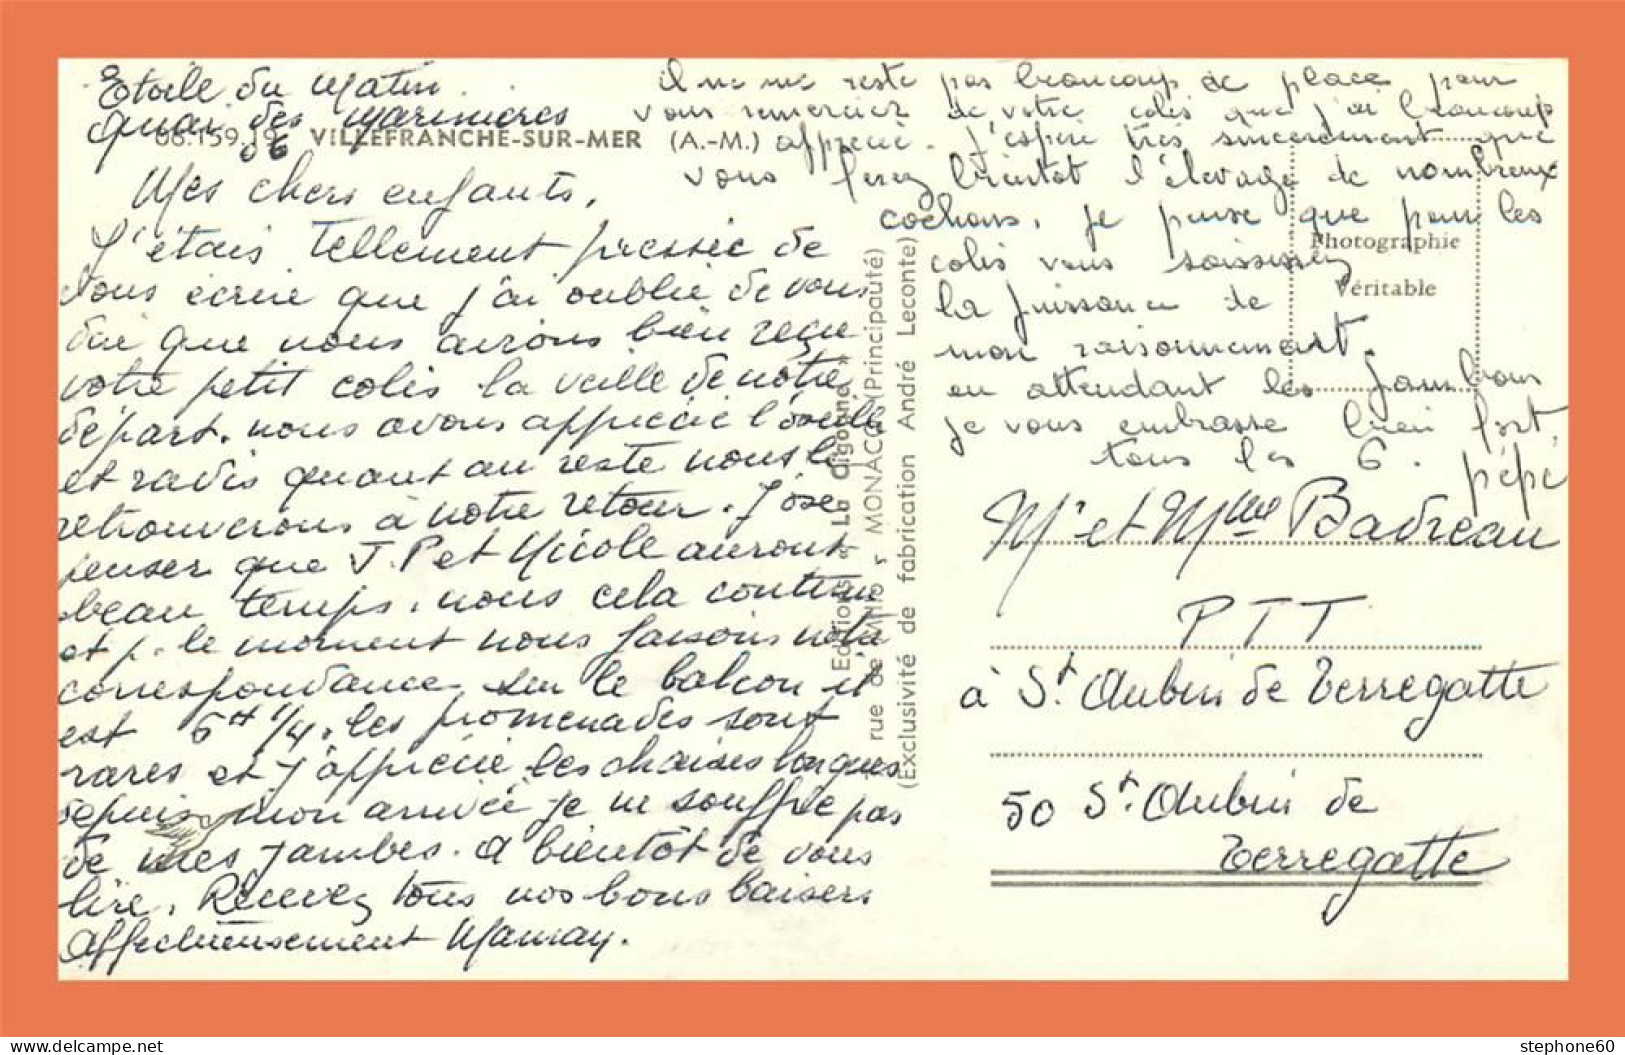 Etoile du Matin
quai des marinieres
06.159.19 VILLEFRANCHE-SUR-MER (A.-M.)
06
Mes chers enfants,
J'étais tellement pressée de
vous écrire que j'ai oublié de vous
dire que nous avions bien reçu
votre petit colis la veille de notre
départ. nous avons apprécié l'oseille
et radis quant au reste nous le
retrouverons à notre retour. J'ose
penser que J.P et Nicole auront
beau temps. nous cela continue
et p. le moment nous faisons notre
correspondance sur le balcon il
est 6H 1/4. les promenades sont
rares et j'apprécie les chaises longues
depuis mon arrivée je ne souffre pas
de mes jambes. a bientôt de vous
lire. Recevez tous nos bons baisers
Affectueusement Mamay.
il ne me reste pas beaucoup de place pour
vous remercier de votre colis que j'ai beaucoup
apprécié. J'espère très sincerement que
vous ferez bientot l'élevage de nombreux
cochons, je pense que pour les
colis vous saisissez
la puissance de
mon raisonnement.
en attendant les jambons
je vous embrasse bien fort,
tous les 6. pépé
Photographie
Véritable
Editions « La Cigogne »
rue de MONACO (Principauté)
(Exclusivité de fabrication André Leconte)
Mr et Mme Badreau
PTT
à St. Aubin de Terregatte
50 St. Aubin de
Terregatte
delcampe.net
stephone60